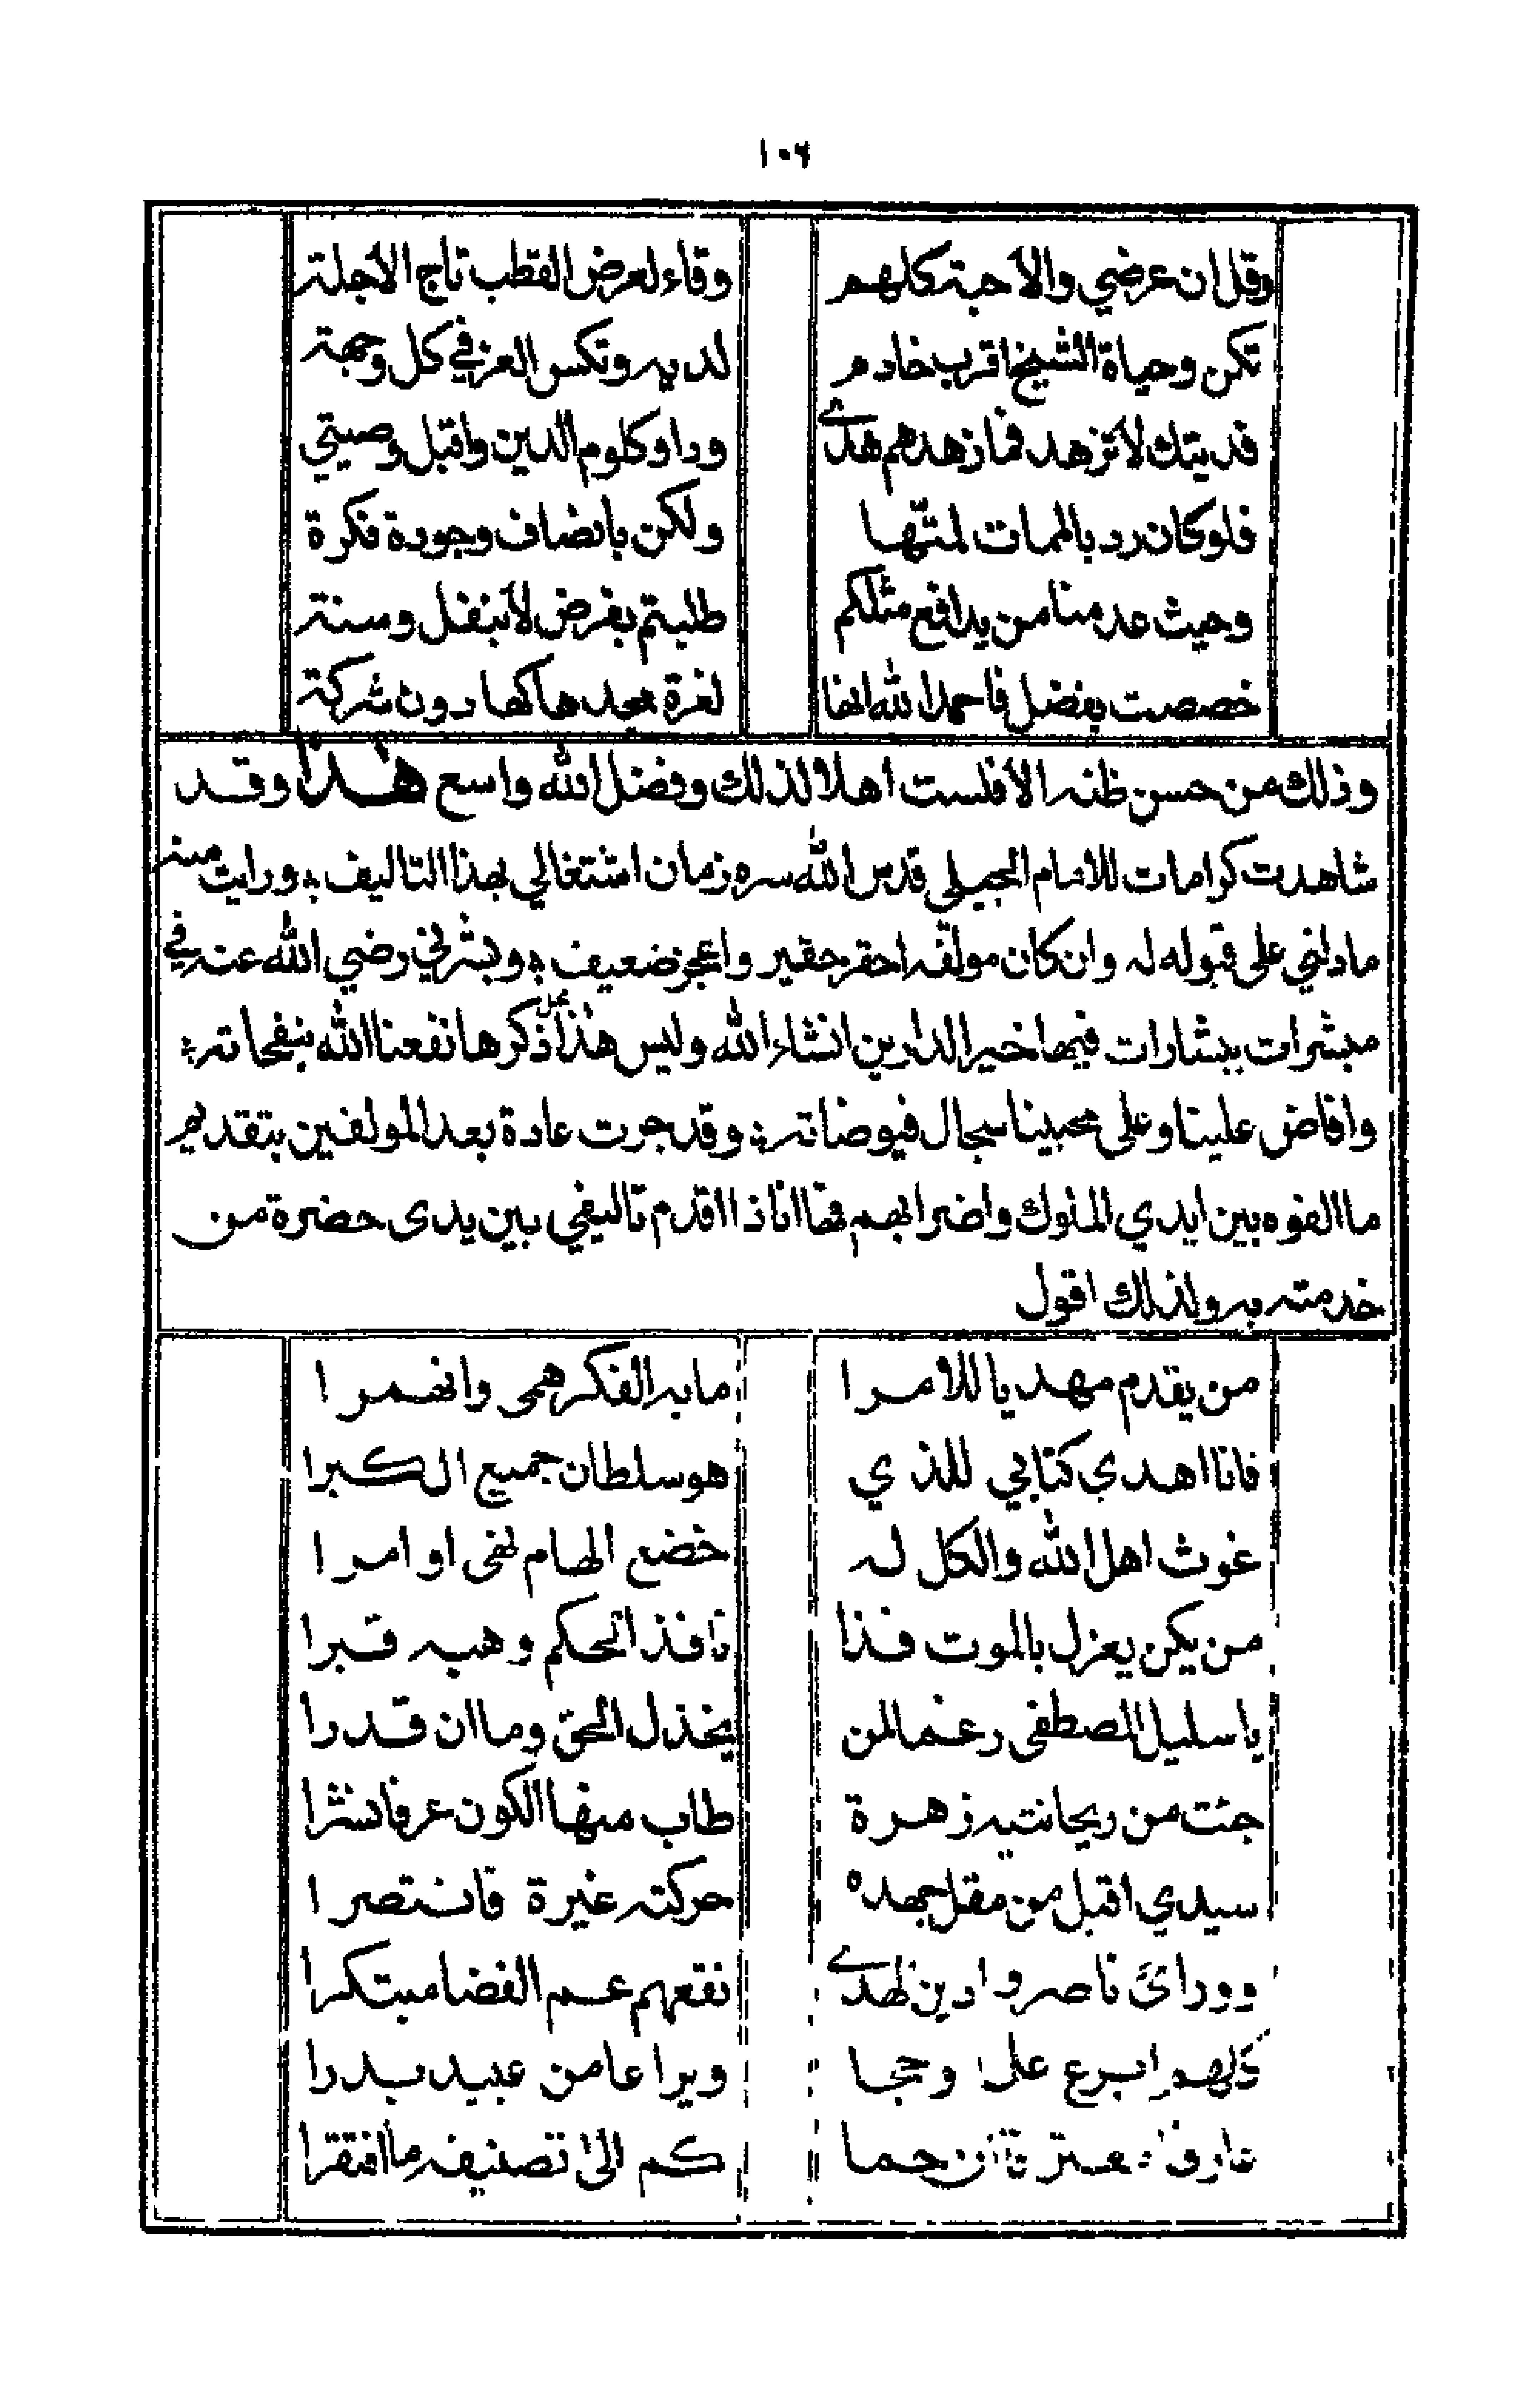 ١٠٦
وقل ان عرضي والأحبة كلهم وقاء لعرض القطب تاج الأجلة
تكن وحياة الشيخ اقرب خادم لديه وتكس العز في كل وجهة
فديتك لا تزهد فما زهدهم هدى وداو كلوم الدين واقبل وصيتي
فلو كان رد بالممات لمتها ولكن بانصاف وجودة فكرة
وحيث عدمنا من يدافع مثلكم طلبتم بفرض لا بنفل وسنة
خصصت بفضل فاحمد الله انها لغرة مجد هاكها دون شركة
وذلك من حسن ظنه والا فلست اهلا لذلك وفضل الله واسع هذا وقد
شاهدت كرامات للامام الجيلي قدس الله سره زمان اشتغالي بهذا التاليف ورايت منه
ما دلني على قبوله له وان كان مولفه احقر حقير واعجز ضعيف وبشرني رضي الله عنه في
مبشرات ببشارات فيها خير الدارين انشاء الله وليس هذا محل ذكرها نفعنا الله بنفحاته
وافاض علينا وعلى محبينا سجال فيوضاته وقد جرت عادة بعد المولفين بتقديم
ما الفوه بين ايدي الملوك واضرابهم فها انا ذا اقدم تاليفي بين يدى حضرة من
خدمته به ولذلك اقول
من يقدم مهديا للامرا ما به الفكر همى وانهمرا
فانا اهدي كتابي للذي هو سلطان جميع الكبرا
غوث اهل الله والكل له خضع الهام نهى او امرا
من يكن يعزل بالموت فذا نافذ الحكم وهبه قبرا
يا سليل المصطفى رغما لمن يخذل الحق وما ان قدرا
جئت من ريحانتيه زهرة طاب منها الكون عرفا نشرا
سيدي اقبل من مقل جهده حركته غيرة فانتصرا
وورائ ناصروا دين الهدى نقعهم عم الفضا مبتكرا
كلهم ابرع علما وحجا ويراعا من عبيد بدرا
عارف حما كم الى تصنيفه ما افتقرا